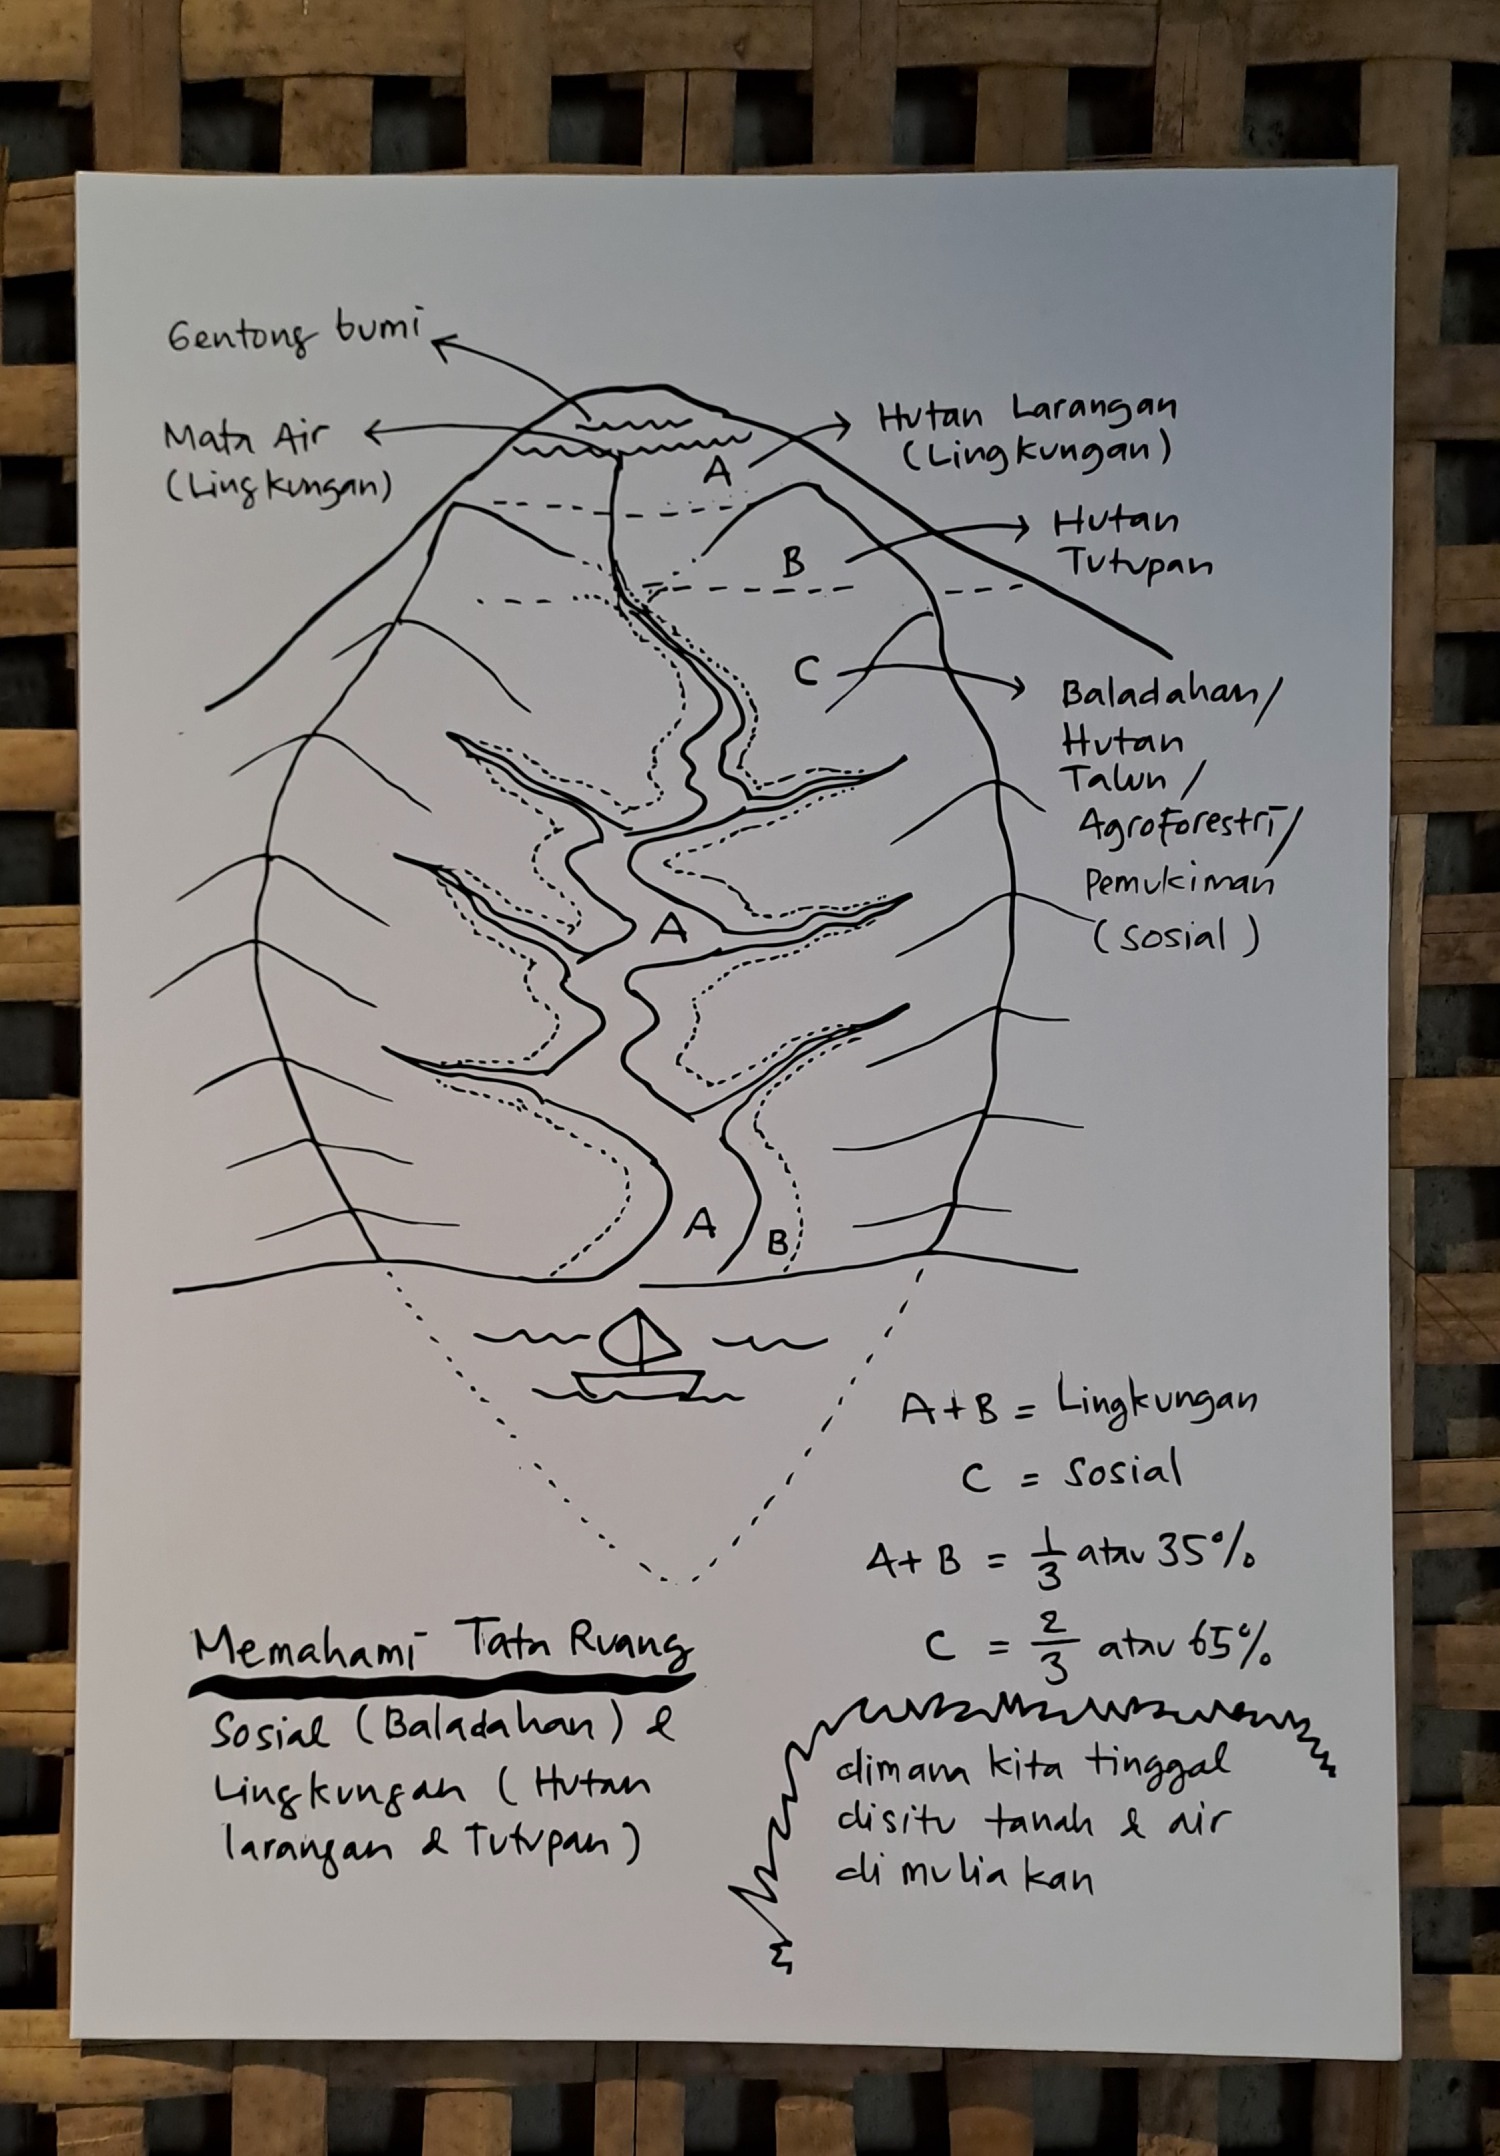 Gentong bumi
Mata Air
(Lingkungan)
Hutan Larangan
(Lingkungan)
A
Hutan
Tutupan
B
C
Baladahan/
Hutan
Talun/
Agroforestri/
Pemukiman
(Sosial)
A
A
B
A+B = Lingkungan
C = Sosial
A+B = 1/3 atau 35%
C = 2/3 atau 65%
Memahami Tata Ruang
Sosial (Baladahan) &
Lingkungan (Hutan
larangan & Tutupan)
dimana kita tinggal
disitu tanah & air
di mulia kan